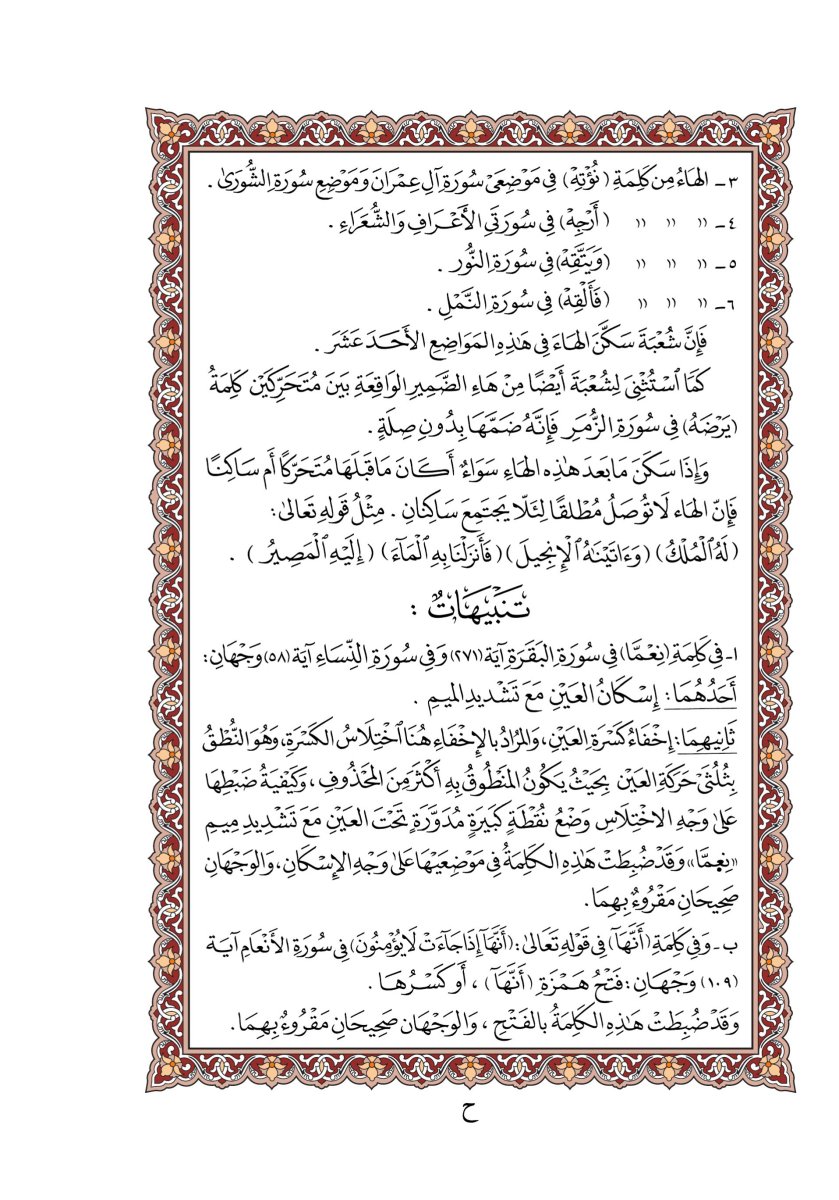 ٣ـ الهَاءُ مِن كَلِمَةِ (نُؤْتِهْ) فِي مَوْضِعَيْ سُورَةِ آلِ عِمْرَانَ وَمَوْضِعِ سُورَةِ الشُّورَىٰ .
٤ـ ,, ,, ,, (أَرْجِهْ) فِي سُورَتَيِ الأَعْرَافِ وَالشُّعَرَاءِ .
٥ـ ,, ,, ,, (وَيَتَّقِهْ) فِي سُورَةِ النُّورِ .
٦ـ ,, ,, ,, (فَأَلْقِهْ) فِي سُورَةِ النَّمْلِ .
فَإِنَّ شُعْبَةَ سَكَّنَ الهَاءَ فِي هَٰذِهِ المَوَاضِعِ الأَحَدَ عَشَرَ .
كَمَا ٱسْتُثْنِيَ لِشُعْبَةَ أَيْضًا مِنْ هَاءِ الضَّمِيرِ الوَاقِعَةِ بَيْنَ مُتَحَرِّكَيْنِ كَلِمَةُ
(يَرْضَهُ) فِي سُورَةِ الزُّمَرِ فَإِنَّهُ ضَمَّهَا بِدُونِ صِلَةٍ .
وَإِذَا سَكَنَ مَا بَعْدَ هَٰذِهِ الهَاءِ سَوَاءٌ أَكَانَ مَا قَبْلَهَا مُتَحَرِّكًا أَم سَاكِنًا
فَإِنَّ الهَاءَ لَا تُوصَلُ مُطْلَقًا لِئَلَّا يَجْتَمِعَ سَاكِنَانِ . مِثْلُ قَوْلِهِ تَعَالَىٰ:
(لَهُ ٱلْمُلْكُ) (وَءَاتَيْنَٰهُ ٱلْإِنجِيلَ) (فَأَنزَلْنَا بِهِ ٱلْمَآءَ) (إِلَيْهِ ٱلْمَصِيرُ) .
تَنْبِيهَاتٌ :
١ـ فِي كَلِمَةِ (نِعْمَّا) فِي سُورَةِ البَقَرَةِ آيَة (٢٧١) وَفِي سُورَةِ النِّسَاءِ آيَة (٥٨) وَجْهَانِ:
أَحَدُهُمَا: إِسْكَانُ العَيْنِ مَعَ تَشْدِيدِ المِيمِ .
ثَانِيهِمَا: إِخْفَاءُ كَسْرَةِ العَيْنِ، وَالمُرَادُ بِالإِخْفَاءِ هُنَا ٱخْتِلَاسُ الكَسْرَةِ، وَهُوَ النُّطْقُ
بِثُلُثَيْ حَرَكَةِ العَيْنِ بِحَيْثُ يَكُونُ المَنْطُوقُ بِهِ أَكْثَرَ مِنَ المَحْذُوفِ، وَكَيْفِيَةُ ضَبْطِهَا
عَلَىٰ وَجْهِ الاخْتِلَاسِ وَضْعُ نُقْطَةٍ كَبِيرَةٍ مُدَوَّرَةٍ تَحْتَ العَيْنِ مَعَ تَشْدِيدِ مِيمِ
«نِعِمَّا» وَقَدْ ضُبِطَتْ هَٰذِهِ الكَلِمَةُ فِي مَوْضِعَيْهَا عَلَىٰ وَجْهِ الإِسْكَانِ، وَالوَجْهَانِ
صَحِيحَانِ مَقْرُوءٌ بِهِمَا.
ب ـ وَفِي كَلِمَةِ (أَنَّهَآ) فِي قَوْلِهِ تَعَالَىٰ: (أَنَّهَآ إِذَا جَاءَتْ لَا يُؤْمِنُونَ) فِي سُورَةِ الأَنْعَامِ آيَة
(١٠٩) وَجْهَانِ: فَتْحُ هَمْزَةِ (أَنَّهَآ) ، أَو كَسْرُهَا .
وَقَدْ ضُبِطَتْ هَٰذِهِ الكَلِمَةُ بِالفَتْحِ ، وَالوَجْهَانِ صَحِيحَانِ مَقْرُوءٌ بِهِمَا.
ح